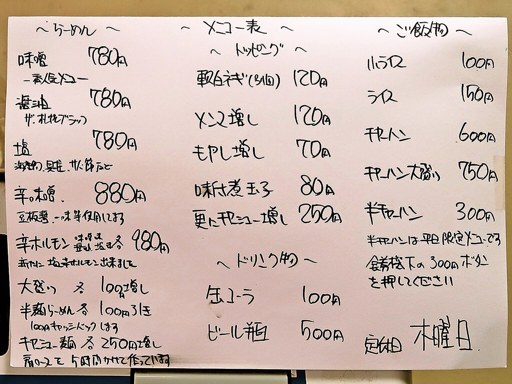 〜らーめん〜
味噌 780円
一番人気メニュー
醤油 780円
ザ・札幌ブラック
塩 780円
780円
辛口味噌 880円
豆板醤、一味等使用してます
辛ホルモン 味噌味 醤油、塩味各 980円
新たに 塩辛ホルモン出来ました
大盛り 各 100円増し
半麺らーめん 各 100円引き
100円キャッシュバックします
チャーシュー麺 各 250円増し
肩ロースを 5時間かけて作っています
〜メニュー表〜
〜トッピング〜
軟白ネギ(別皿) 120円
メンマ増し 120円
もやし増し 70円
味付煮玉子 80円
更にチャーシュー増し 250円
〜ドリンク物〜
缶コーラ 100円
ビール瓶 500円
〜ご飯物〜
小ライス 100円
ライス 150円
チャーハン 600円
チャーハン大盛り 750円
半チャーハン 300円
半チャーハンは平日限定メニューです
食券機下の300円ボタン
を押してください
定休日 木曜日